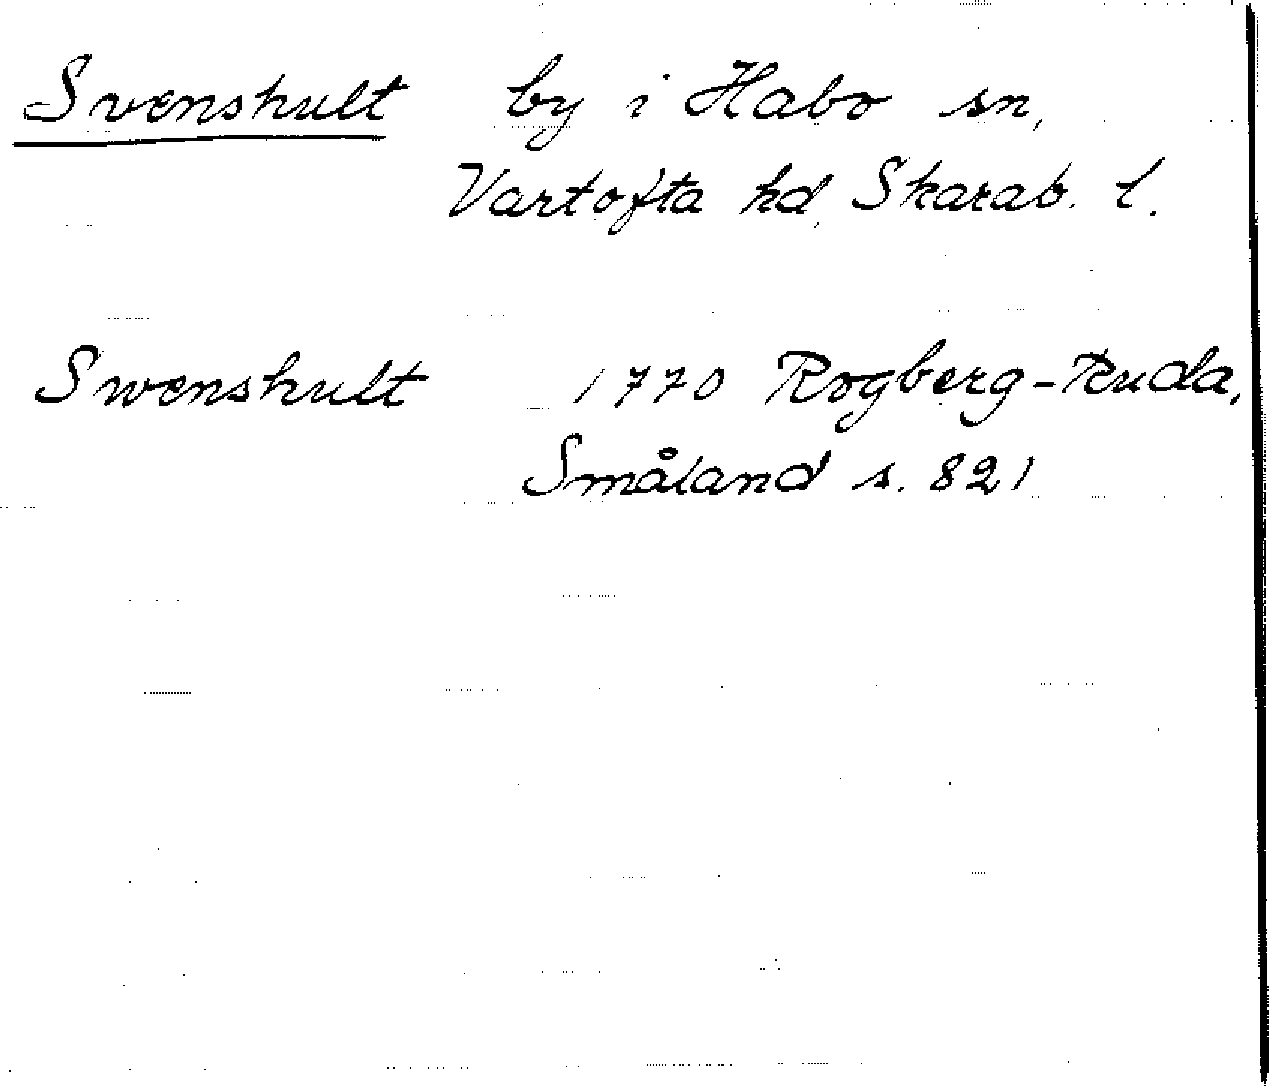 Svenshult by i Habo sn,
Vartofta hd, Skarab. l.
Swenshult 1770 Rogberg-Ruda,
Småland s. 821